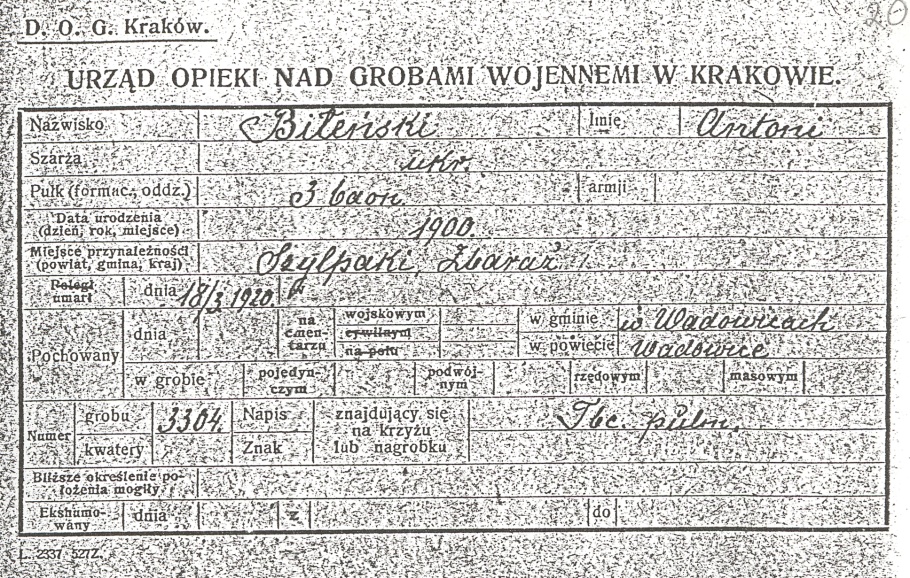 20
D. O. G. Kraków.
URZĄD OPIEKI NAD GROBAMI WOJENNEMI W KRAKOWIE.
Nazwisko Biłeński Imię Antoni
Szarża ukr.
Pułk (formac., oddz.) 3 baon. armji
Data urodzenia
(dzień, rok, miejsce) 1900.
Miejsce przynależności
(powiat, gmina, kraj) Szylpaki, Zbaraż
Poległ
umarł dnia 18/3 1920
Pochowany dnia na cmen-
tarzu wojskowym
cywilnym
na polu
w gminie w Wadowicach
w powiecie Wadowice
w grobie pojedyn-
czym podwój-
nym rzędowym masowym
Numer grobu 3304 Napis
kwatery Znak
znajdujący się
na krzyżu
lub nagrobku
Tbc. pulm.
Bliższe określenie po-
łożenia mogiły
Ekshumo-
wany dnia z do
L. 2337 527Z.